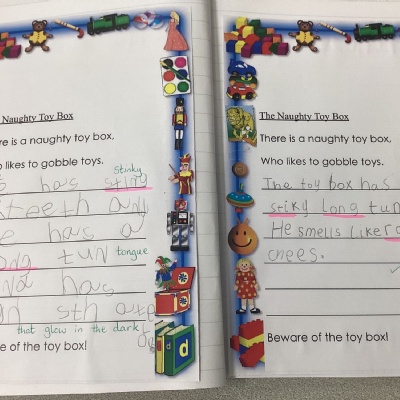 Naughty Toy Box
re is a naughty toy box,
o likes to gobble toys.
stinky
has stiny
teeth and
e has a
ong tun tongue
nd has
that glow in the dark
e of the toy box!
d
The Naughty Toy Box
There is a naughty toy box,
Who likes to gobble toys.
The toy box has
stiky long tun
He smells like ro
chees.
Beware of the toy box!